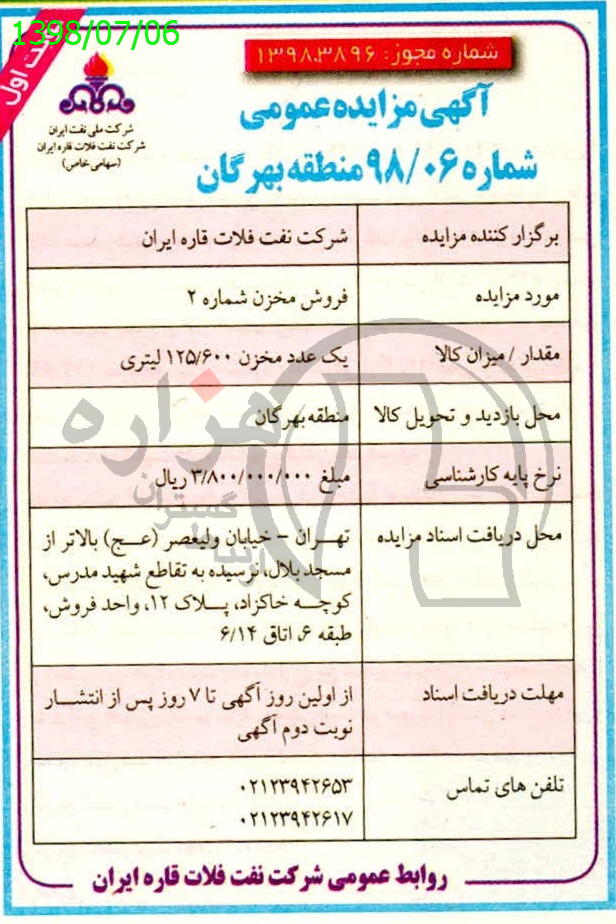 1398/07/06
نوبت اول
شماره مجوز: ۱۳۹۸.۳۸۹۶
شرکت ملی نفت ایران
شرکت نفت فلات قاره ایران
(سهامی خاص)
آگهی مزایده عمومی
شماره ۹۸/۰۶ منطقه بهرگان
برگزار کننده مزایده شرکت نفت فلات قاره ایران
مورد مزایده فروش مخزن شماره ۲
مقدار / میزان کالا یک عدد مخزن ۱۲۵/۶۰۰ لیتری
محل بازدید و تحویل کالا منطقه بهرگان
نرخ پایه کارشناسی مبلغ ۳/۸۰۰/۰۰۰/۰۰۰ ریال
محل دریافت اسناد مزایده تهران - خیابان ولیعصر (عج) بالاتر از
مسجد بلال، نرسیده به تقاطع شهید مدرس،
کوچه خاکزاد، پلاک ۱۲، واحد فروش،
طبقه ۶، اتاق ۶/۱۴
مهلت دریافت اسناد از اولین روز آگهی تا ۷ روز پس از انتشار
نوبت دوم آگهی
تلفن های تماس ۰۲۱۲۳۹۴۲۶۵۳
۰۲۱۲۳۹۴۲۶۱۷
روابط عمومی شرکت نفت فلات قاره ایران
هزاره
گستران